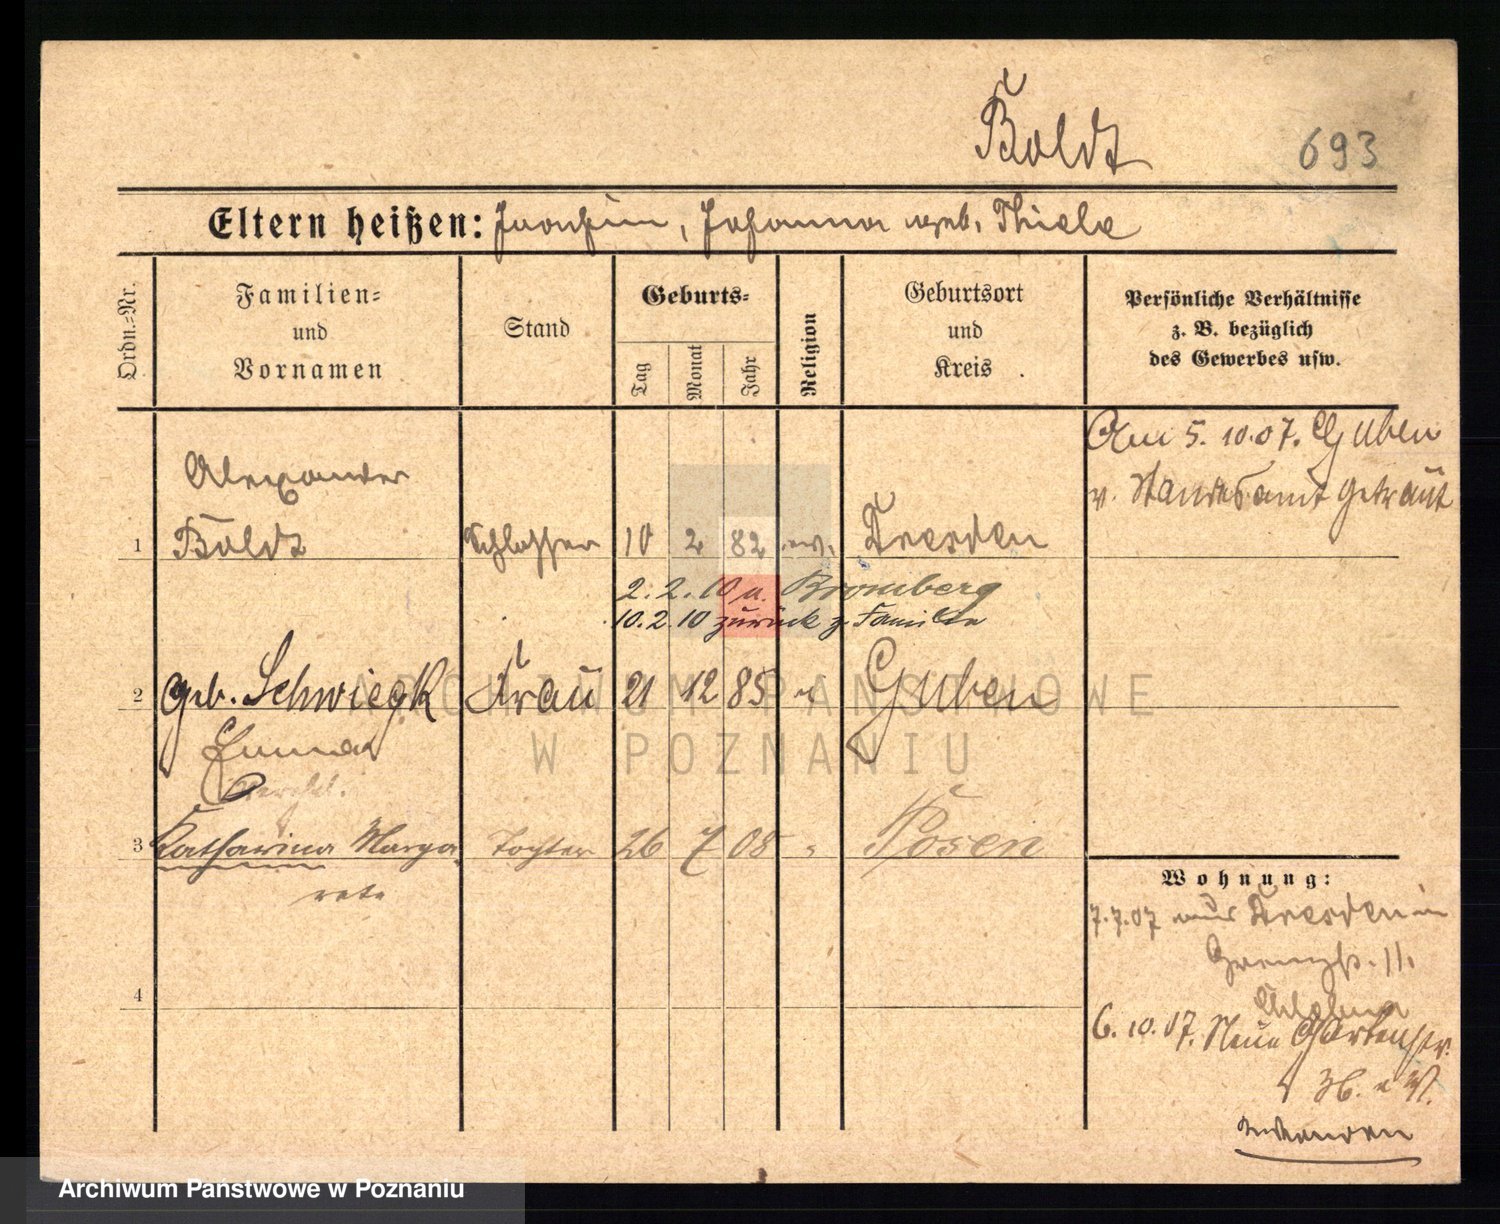 Boldt
693
Eltern heißen: Joachim, Johanna geb. Thiele
Ordn.-Nr.
Familien-
und
Vornamen
Stand
Geburts-
Tag
Monat
Jahr
Religion
Geburtsort
und
Kreis
Persönliche Verhältnisse
z. B. bezüglich
des Gewerbes usw.
Am 5. 10. 07. Guben
v. Standesamt getraut
Alexander
1 Boldt Schlosser 10 2 82 ev. Dresden
2. 2. 10 n. Bromberg
10. 2. 10 zurück z. Familie
2 geb. Schwiegk Frau 21 12 85 " Guben
Emma
3 Katharina Marga Tochter 26 7 08 " Posen
rete
4
Wohnung:
7. 7. 07 aus Dresden in
Grenzstr. 11.
6. 10. 07. Neue Gartenstr.
ARCHIWUM PAŃSTWOWE
W POZNANIU
Archiwum Państwowe w Poznaniu